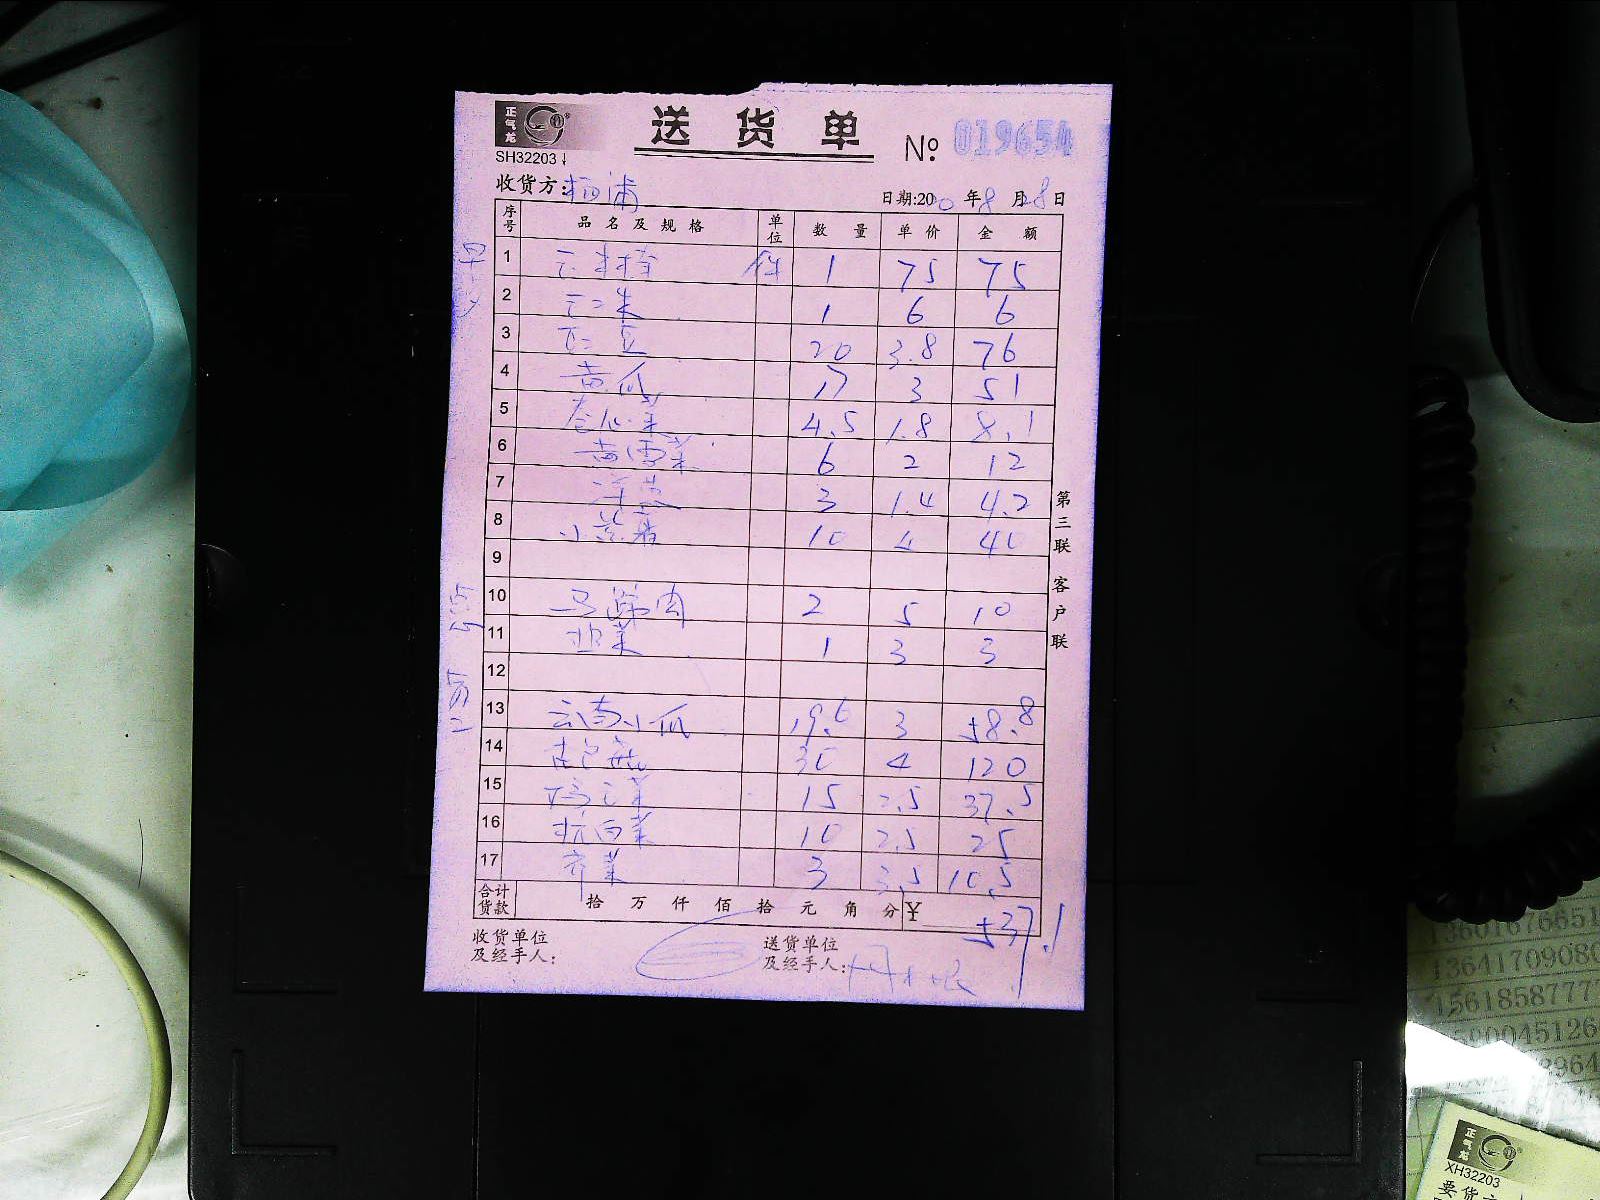 正气龙
送货单
№ 019654
SH32203
收货方: 杨浦
日期:20 年8月28日
序号 品名及规格 单位 数量 单价 金额
1 件 1 75 75
2 1 6 6
3 豆 20 3.8 76
4 黄瓜 17 3 51
5 卷心菜 4.5 1.8 8.1
6 菜 6 2 12
7 洋葱 3 1.4 4.2
8 小 10 4 40
9
10 马蹄肉 2 5 10
11 韭菜 1 3 3
12
13 云南小瓜 19.6 3 58.8
14 杏包菇 30 4 120
15 菜 15 2.5 37.5
16 杭白菜 10 2.5 25
17 齐菜 3 3.5 10.5
合计货款 拾 万 仟 佰 拾 元 角 分 ¥ 537.1
收货单位及经手人:
送货单位及经手人:
第三联 客户联
13601676651
1364170908
1561858777
0045126
8964
正气龙
XH32203
要货